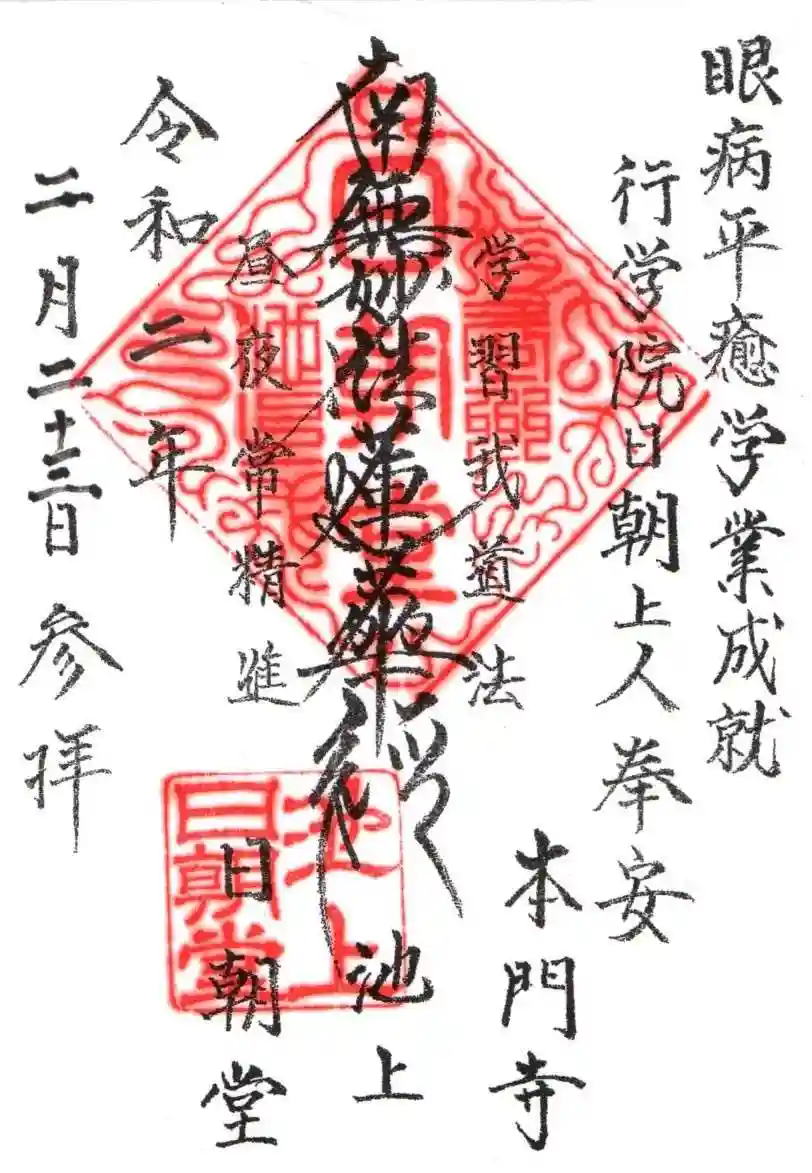 眼病平癒学業成就
行学院日朝上人奉安
学習我道法
本門寺
南無妙法蓮華経
池上
昼夜常精進
日朝堂
令和二年
二月二十三日参拝
池上
日朝堂